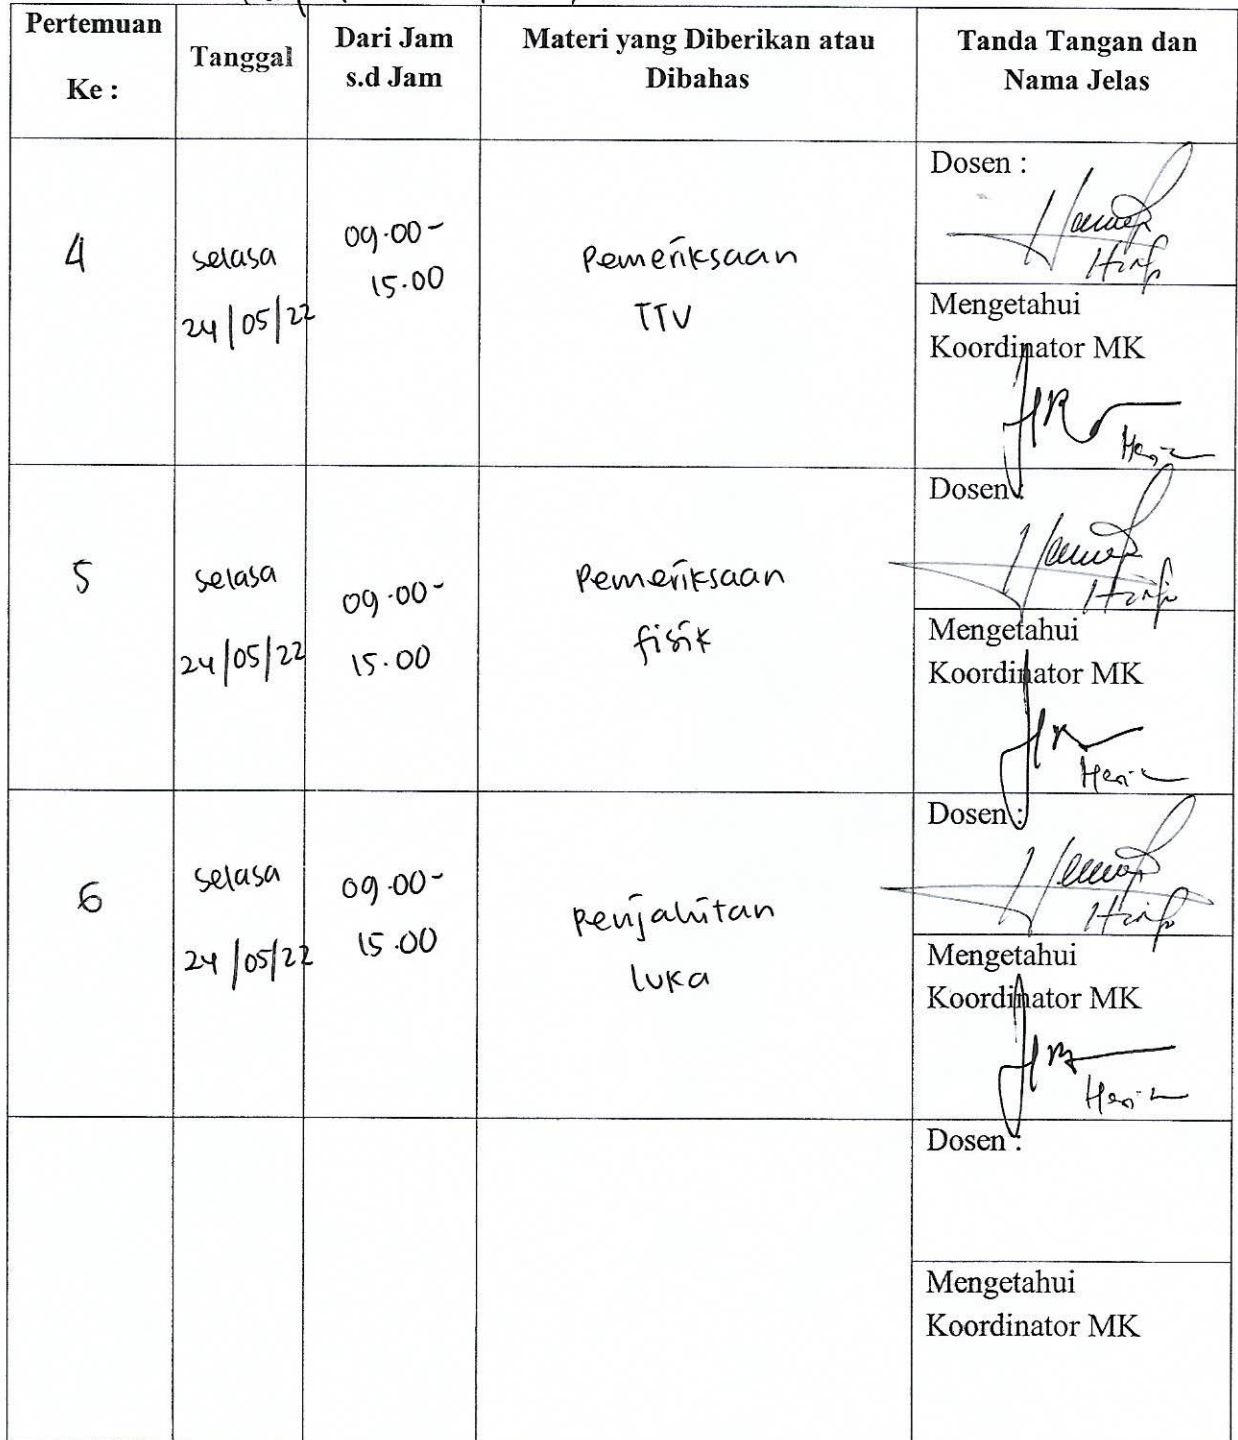 Pertemuan
Ke :
Tanggal
Dari Jam
s.d Jam
Materi yang Diberikan atau
Dibahas
Tanda Tangan dan
Nama Jelas
4
selasa
24/05/22
09.00-
15.00
Pemeriksaan
TTV
Dosen :
Mengetahui
Koordinator MK
5
selasa
24/05/22
09.00-
15.00
Pemeriksaan
fisik
Dosen :
Mengetahui
Koordinator MK
6
selasa
24/05/22
09.00-
15.00
Penjahitan
luka
Dosen :
Mengetahui
Koordinator MK
Dosen :
Mengetahui
Koordinator MK